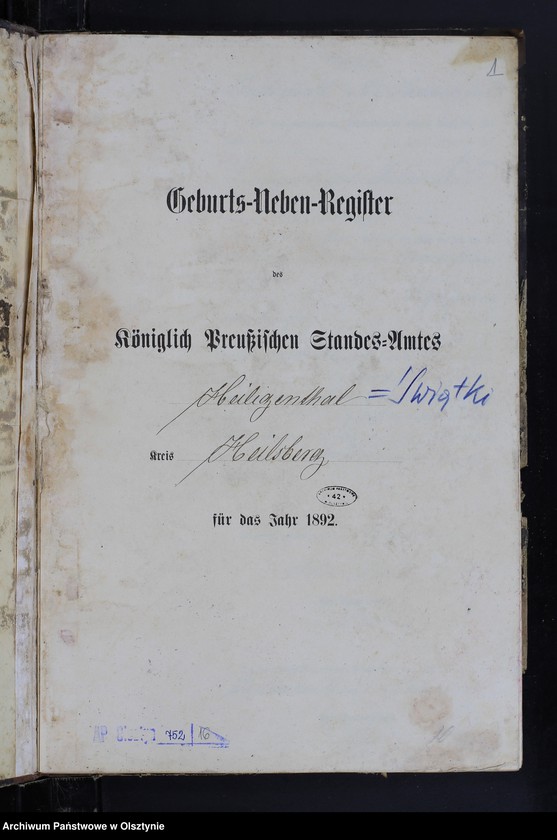 1
Geburts-Neben-Register
des
Königlich Preußischen Standes-Amtes
Heiligenthal = Świątki
Kreis Heilsberg
42
für das Jahr 1892.
AP Olsztyn 752 16
Archiwum Państwowe w Olsztynie